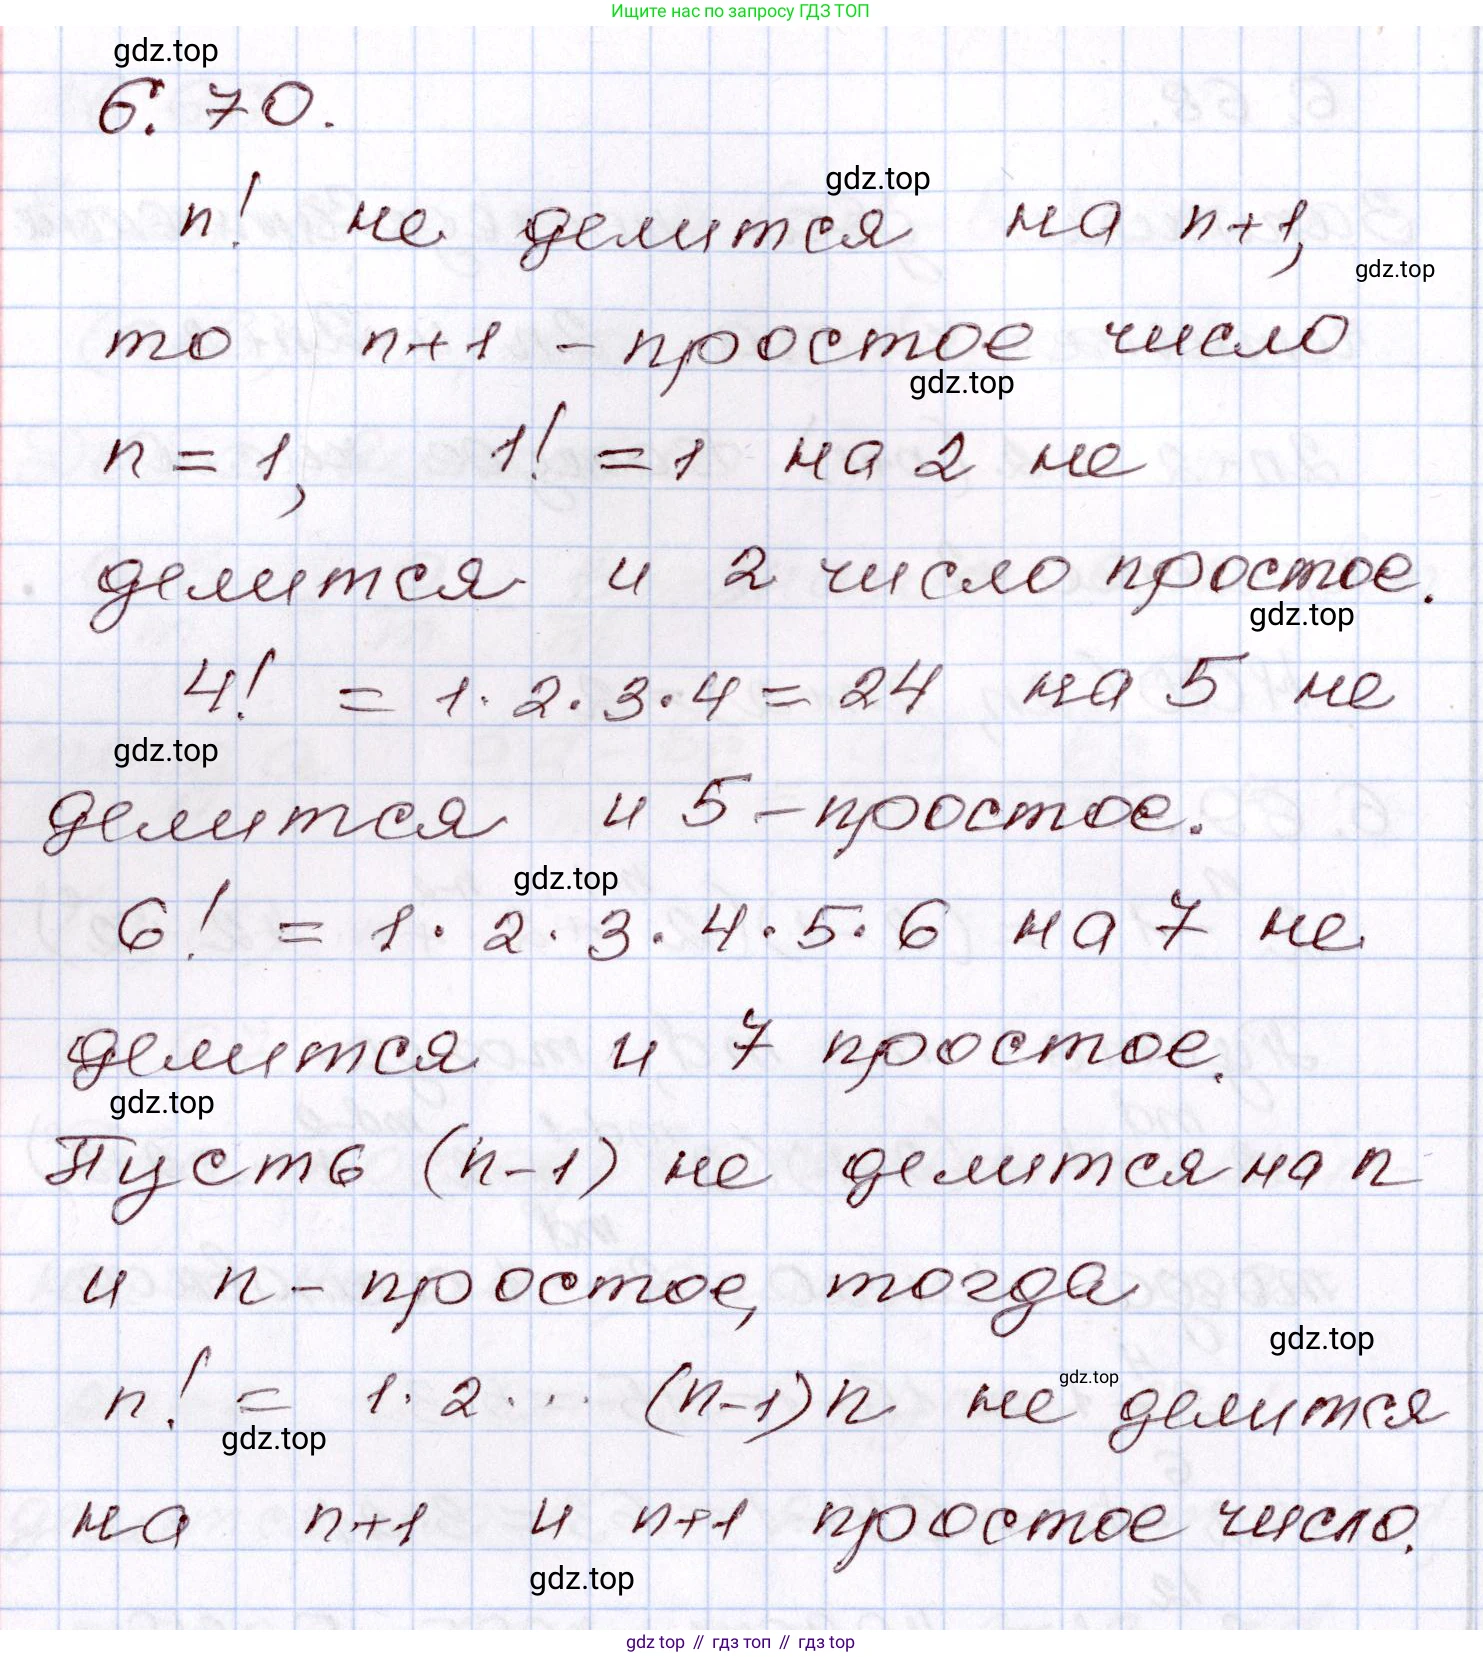 Ищите нас по запросу ГДЗ ТОП
gdz.top
6.70.
gdz.top
n! не делится на n+1,
gdz.top
то n+1 - простое число
gdz.top
n = 1, 1! = 1 на 2 не
делится и 2 число простое.
gdz.top
4! = 1·2·3·4 = 24 на 5 не
gdz.top
делится и 5 - простое.
gdz.top
6! = 1·2·3·4·5·6 на 7 не
делится и 7 простое.
gdz.top
Пусть (n-1) не делится на n
и n - простое, тогда
gdz.top
gdz.top
n! = 1·2·... (n-1)n не делится
gdz.top
на n+1 и n+1 простое число.
gdz.top
gdz top // гдз топ // гдз top